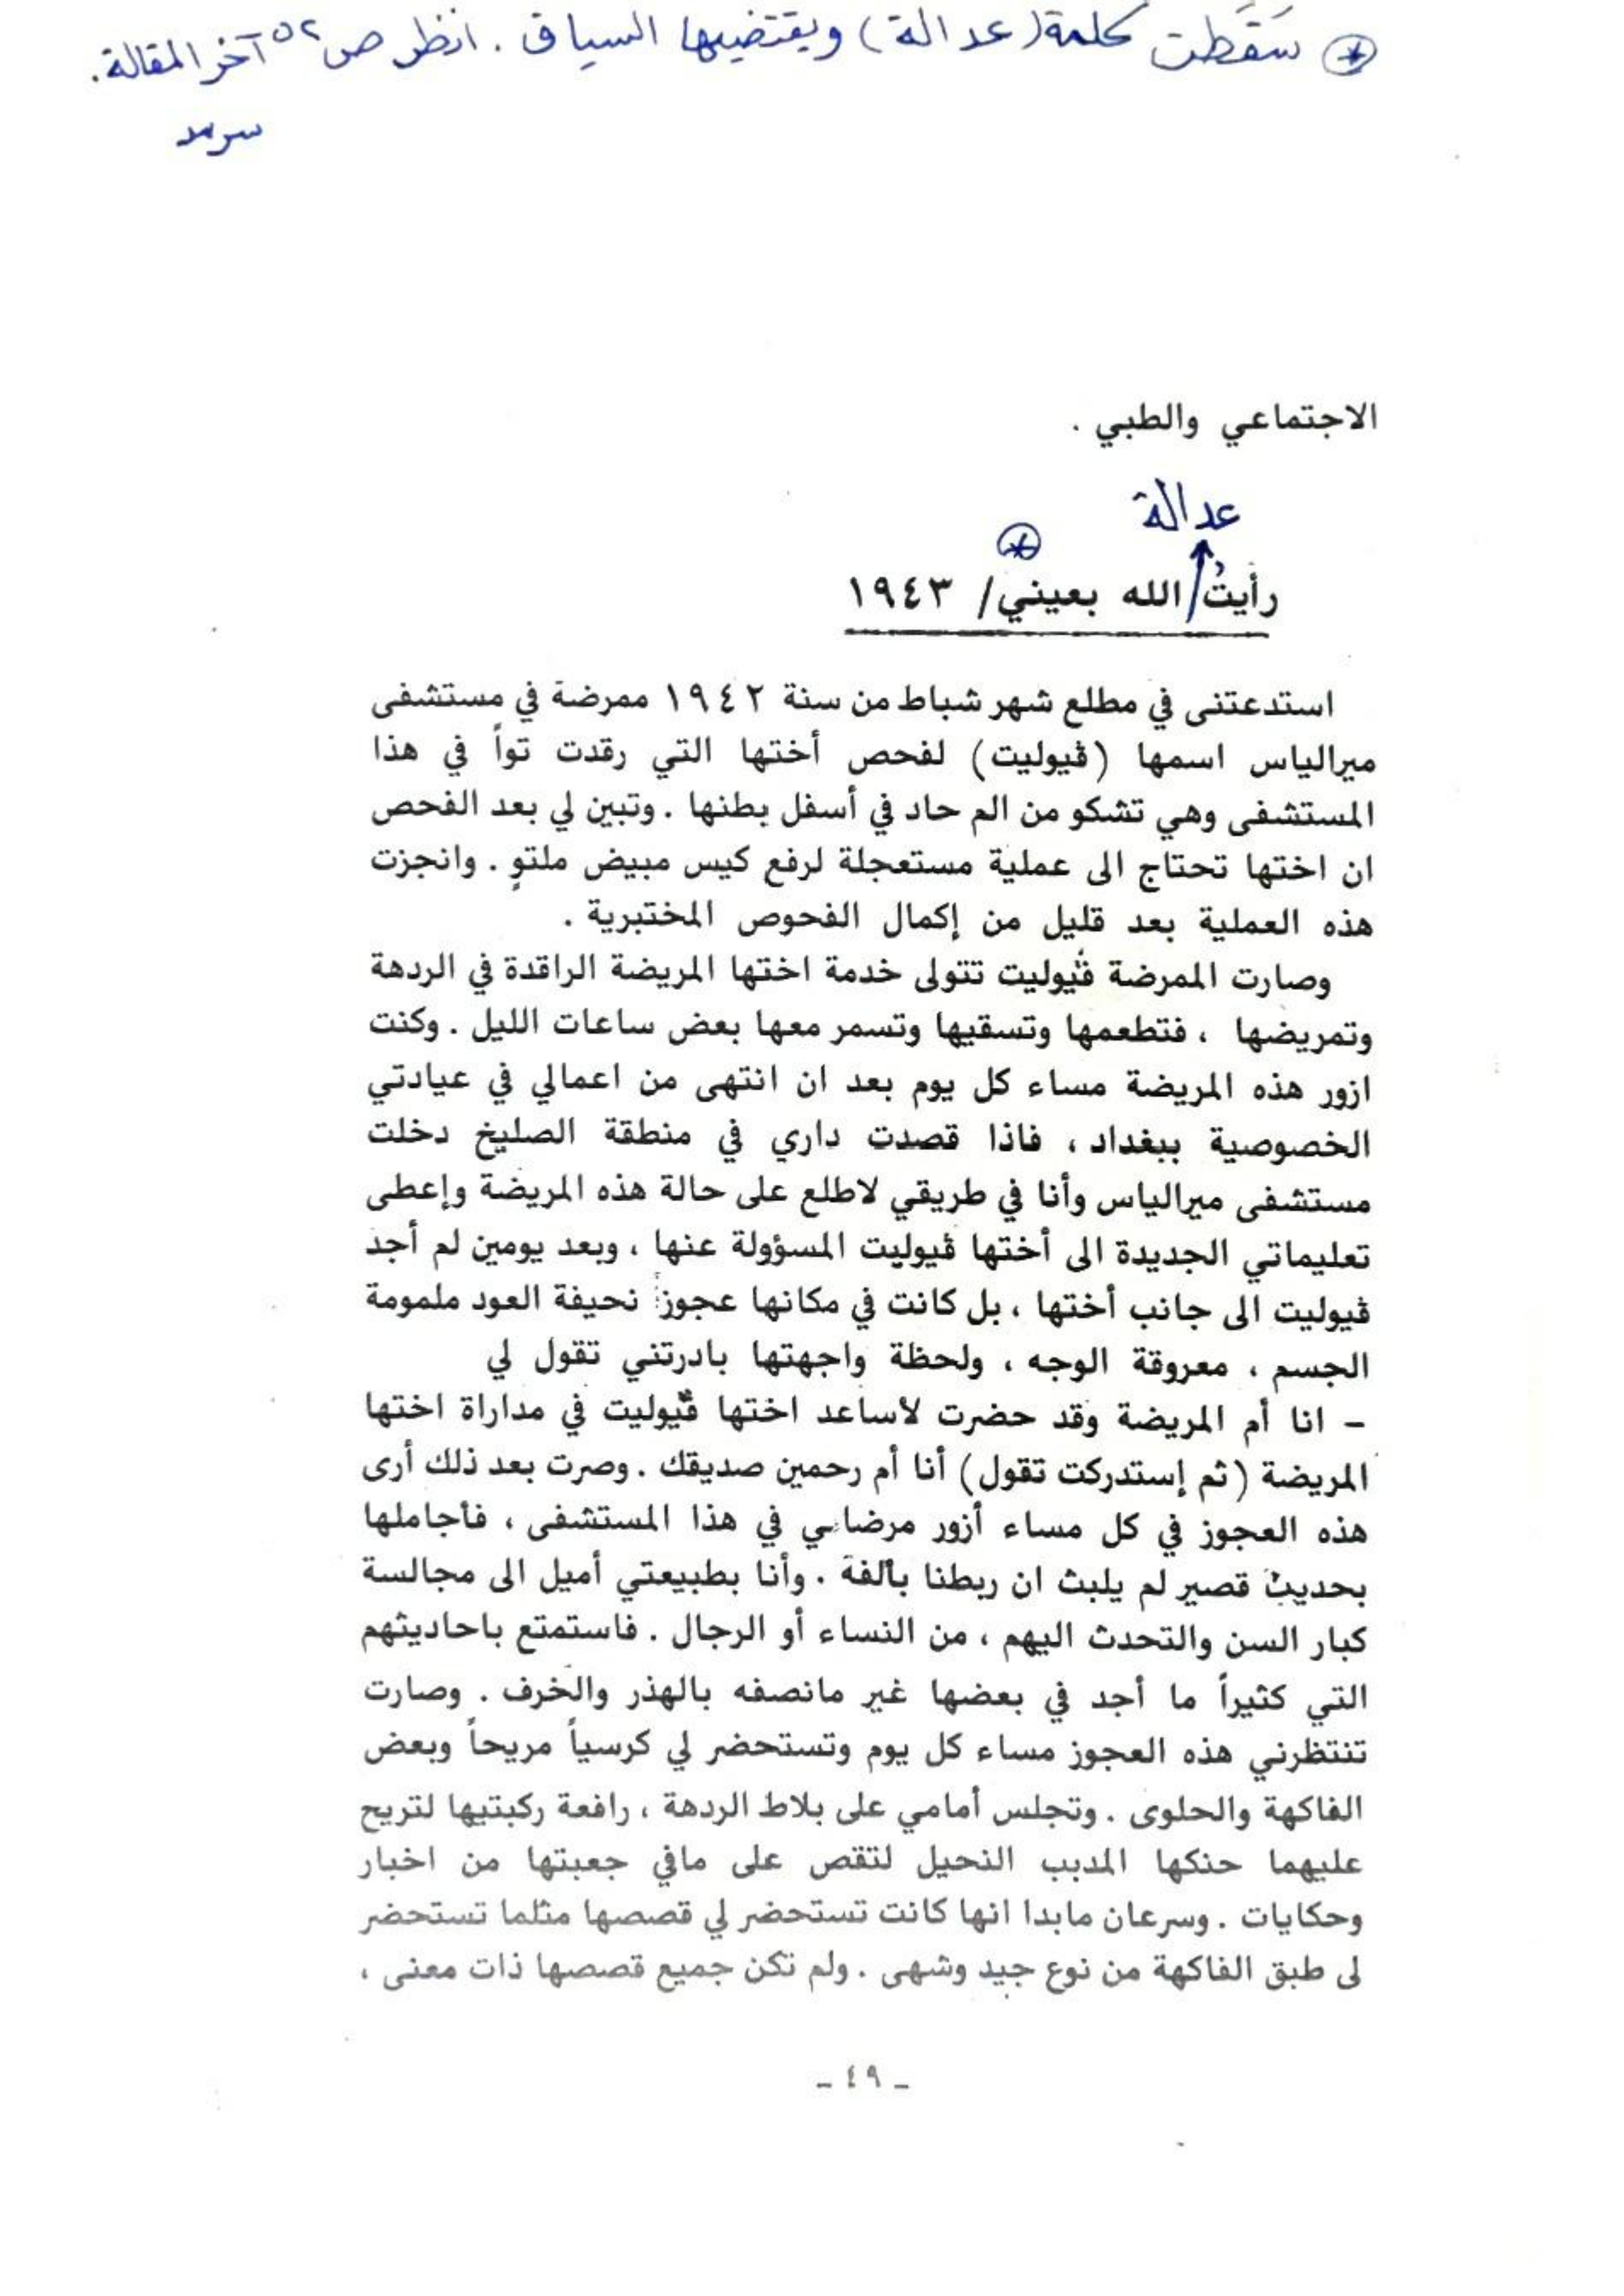 * سَقَطت كلمة (عدالة) ويقتضيها السياق. انظر ص ٥٢ آخر المقالة.
سرمد
الاجتماعي والطبي .
عدالة
*
رأيتُ/الله بعيني/ ١٩٤٣
استدعتنى في مطلع شهر شباط من سنة ١٩٤٢ ممرضة في مستشفى
ميرالياس اسمها (ڤيوليت) لفحص أختها التي رقدت تواً في هذا
المستشفى وهي تشكو من الم حاد في أسفل بطنها . وتبين لي بعد الفحص
ان اختها تحتاج الى عملية مستعجلة لرفع كيس مبيض ملتوٍ . وانجزت
هذه العملية بعد قليل من إكمال الفحوص المختبرية .
وصارت الممرضة ڤيوليت تتولى خدمة اختها المريضة الراقدة في الردهة
وتمريضها ، فتطعمها وتسقيها وتسمر معها بعض ساعات الليل . وكنت
ازور هذه المريضة مساء كل يوم بعد ان انتهى من اعمالي في عيادتي
الخصوصية ببغداد ، فاذا قصدت داري في منطقة الصليخ دخلت
مستشفى ميرالياس وأنا في طريقي لاطلع على حالة هذه المريضة وإعطى
تعليماتي الجديدة الى أختها ڤيوليت المسؤولة عنها ، وبعد يومين لم أجد
ڤيوليت الى جانب أختها ، بل كانت في مكانها عجوز نحيفة العود ملمومة
الجسم ، معروقة الوجه ، ولحظة واجهتها بادرتني تقول لي
– انا أم المريضة وقد حضرت لأساعد اختها ڤيوليت في مداراة اختها
المريضة (ثم إستدركت تقول) أنا أم رحمين صديقك . وصرت بعد ذلك أرى
هذه العجوز في كل مساء أزور مرضاي في هذا المستشفى ، فأجاملها
بحديث قصير لم يلبث ان ربطنا بألفة . وأنا بطبيعتي أميل الى مجالسة
كبار السن والتحدث اليهم ، من النساء أو الرجال . فاستمتع باحاديثهم
التي كثيراً ما أجد في بعضها غير مانصفه بالهذر والخرف . وصارت
تنتظرني هذه العجوز مساء كل يوم وتستحضر لي كرسياً مريحاً وبعض
الفاكهة والحلوى . وتجلس أمامي على بلاط الردهة ، رافعة ركبتيها لتريح
عليهما حنكها المدبب النحيل لتقص على مافي جعبتها من اخبار
وحكايات . وسرعان مابدا انها كانت تستحضر لي قصصها مثلما تستحضر
لى طبق الفاكهة من نوع جيد وشهى . ولم تكن جميع قصصها ذات معنى ،
– ٤٩ –